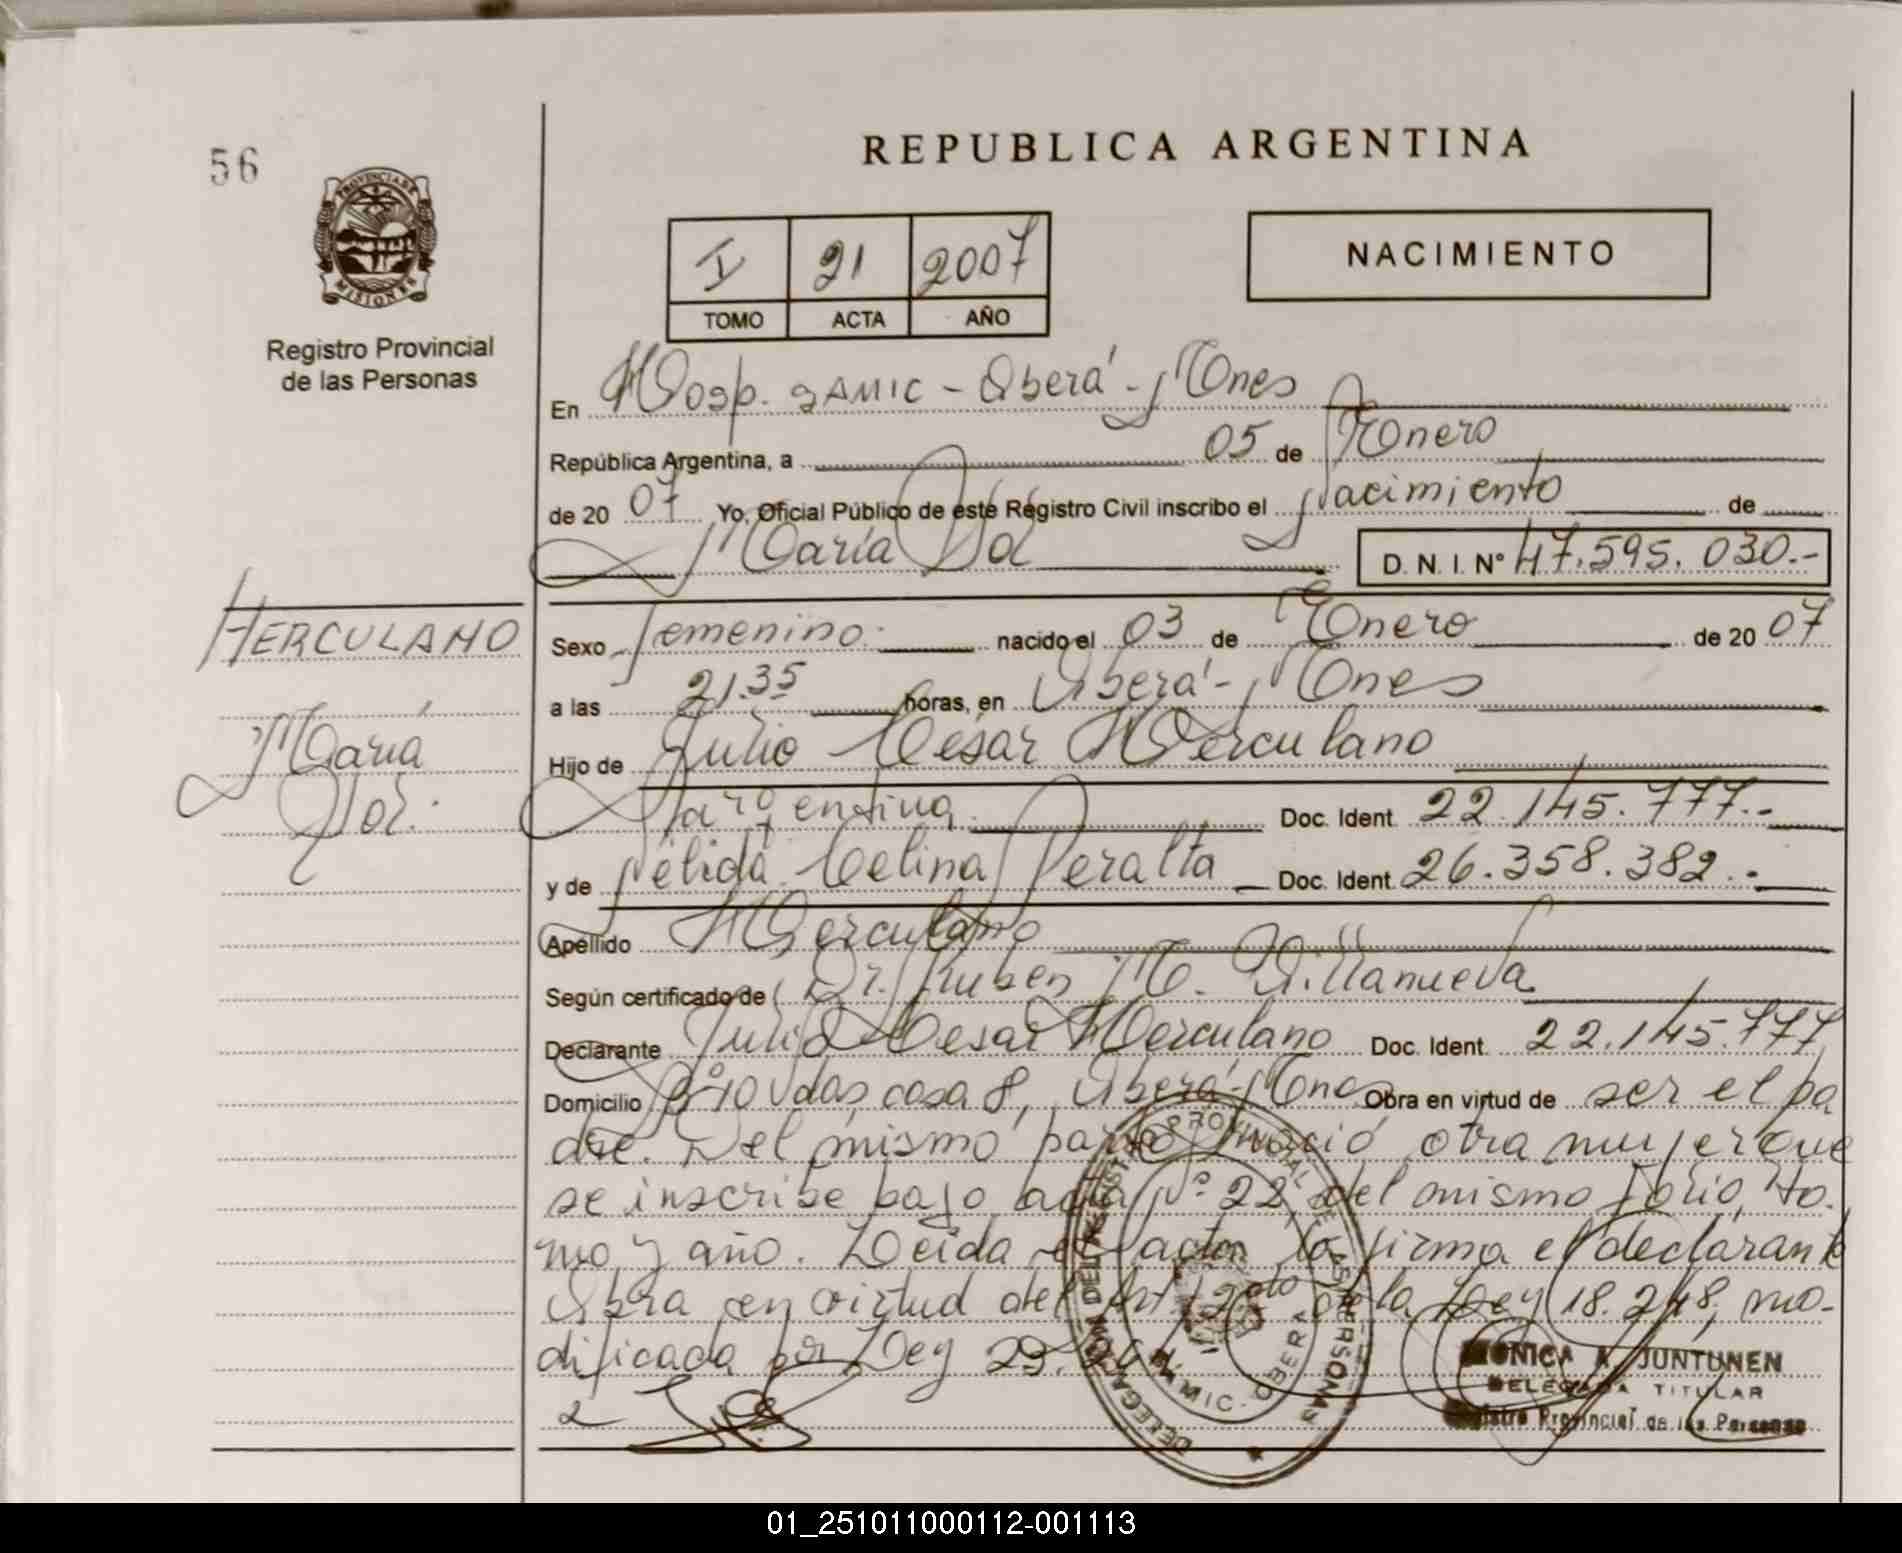 56
PROVINCIA DE
MISIONES
Registro Provincial
de las Personas
REPUBLICA ARGENTINA
I 21 2007
TOMO ACTA AÑO
NACIMIENTO
En Hosp. SAMIC - Oberá - Mnes
República Argentina, a 05 de Enero
de 20 07 Yo, Oficial Público de este Registro Civil inscribo el Nacimiento de
María Sol
D. N. I. N° 47.595.030.-
HERCULANO
María
Sol.
Sexo femenino. nacido el 03 de Enero de 20 07
a las 21.35 horas, en Oberá - Mnes
Hijo de Julio César Herculano
argentina. Doc. Ident. 22.145.777.-
y de Nélida Celina Peralta Doc. Ident. 26.358.382.-
Apellido Herculano
Según certificado de Dr. Ruben M. Villanueva
Declarante Julio Cesar Herculano Doc. Ident. 22.145.777
Domicilio Bº 10 Vdas, casa 8, Oberá - Mnes Obra en virtud de ser el pa
dre. Del mismo parto nació otra mujer que
se inscribe bajo acta Nº 22, del mismo folio, to-
mo y año. Leída el acta, la firma el declarante
Obra en virtud del Art. 2do de la Ley 18.248, mo-
dificada por Ley 23.
2
DELEGACION DEL REGISTRO PROVINCIAL DE LAS PERSONAS
H. SAMIC - OBERA
MONICA A. JUNTUNEN
DELEGADA TITULAR
Registro Provincial de las Personas
01_251011000112-001113